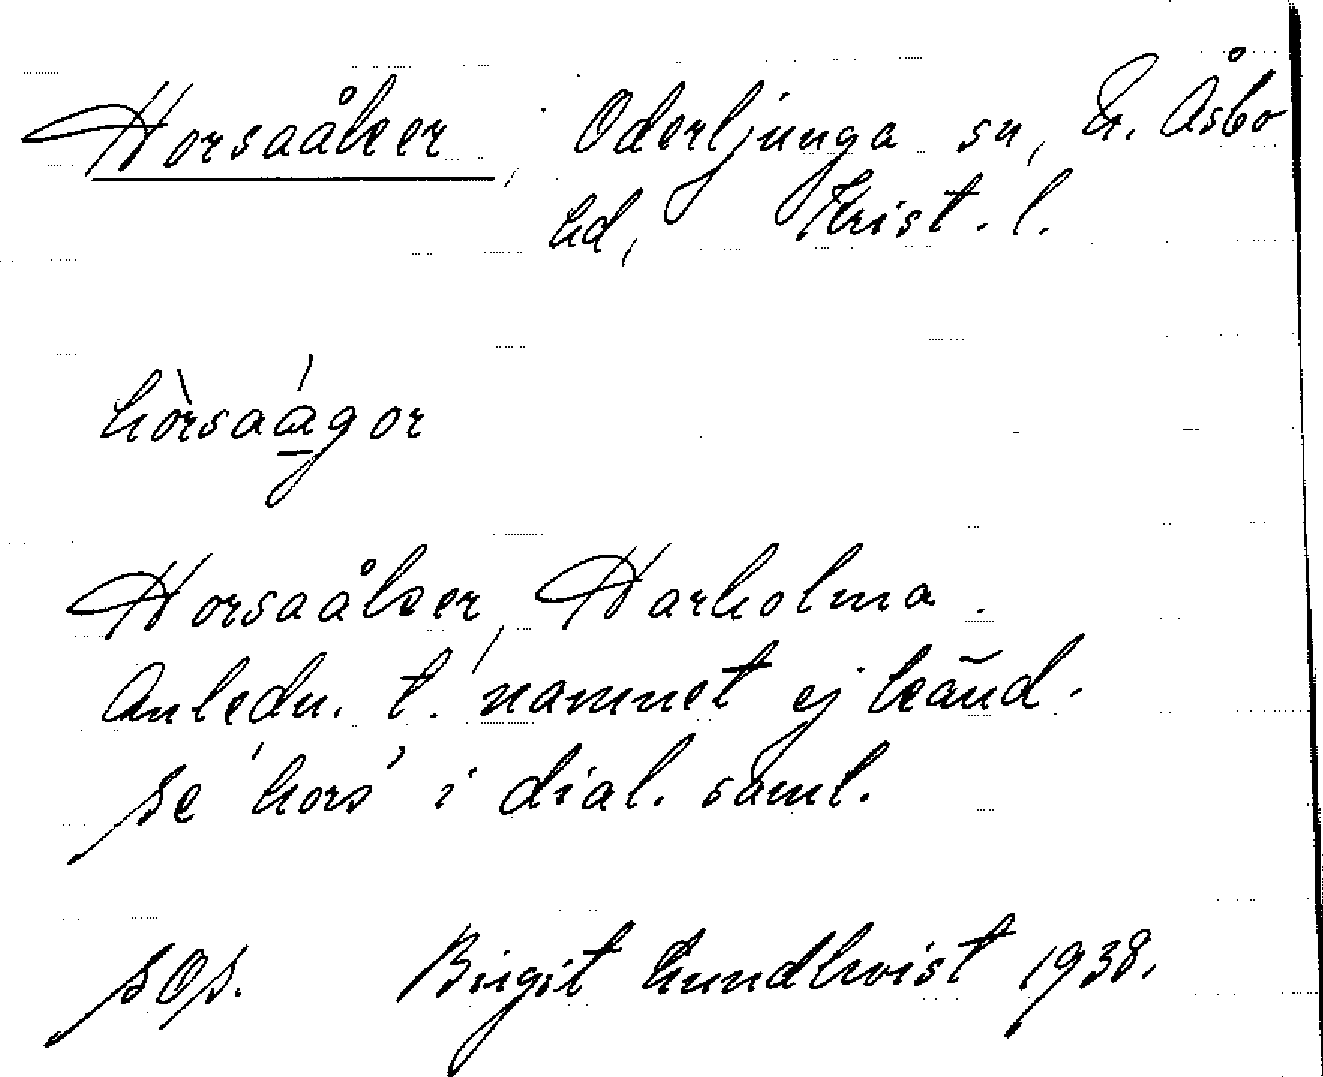 Horsaåker, Oderljunga sn, N. Åsbo
hd, Krist. l.
hòrsaágor
Horsaåker, Harholma.
Anledn. t. namnet ej känd.
se 'hors' i dial. saml.
sOs. Birgit Lundkvist 1938.